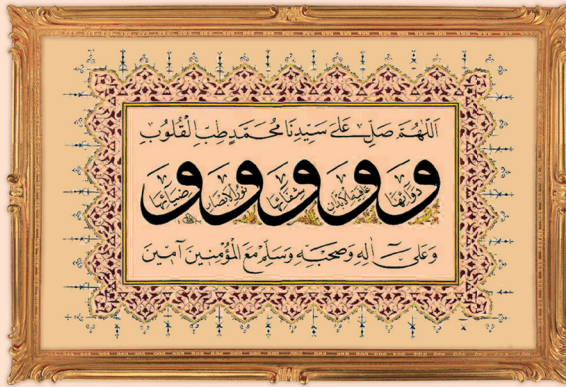 اَللّٰهُمَّ صَلِّ عَلَى سَيِّدِنَا مُحَمَّدٍ طِبِّ الْقُلُوبِ
وَدَوَائِهَا وَعَافِيَةِ الْأَبْدَانِ وَشِفَائِهَا وَنُورِ الْأَبْصَارِ وَضِيَائِهَا
وَعَلَى آلِهِ وَصَحْبِهِ وَسَلِّمْ مَعَ الْمُؤْمِنِينَ آمِينَ